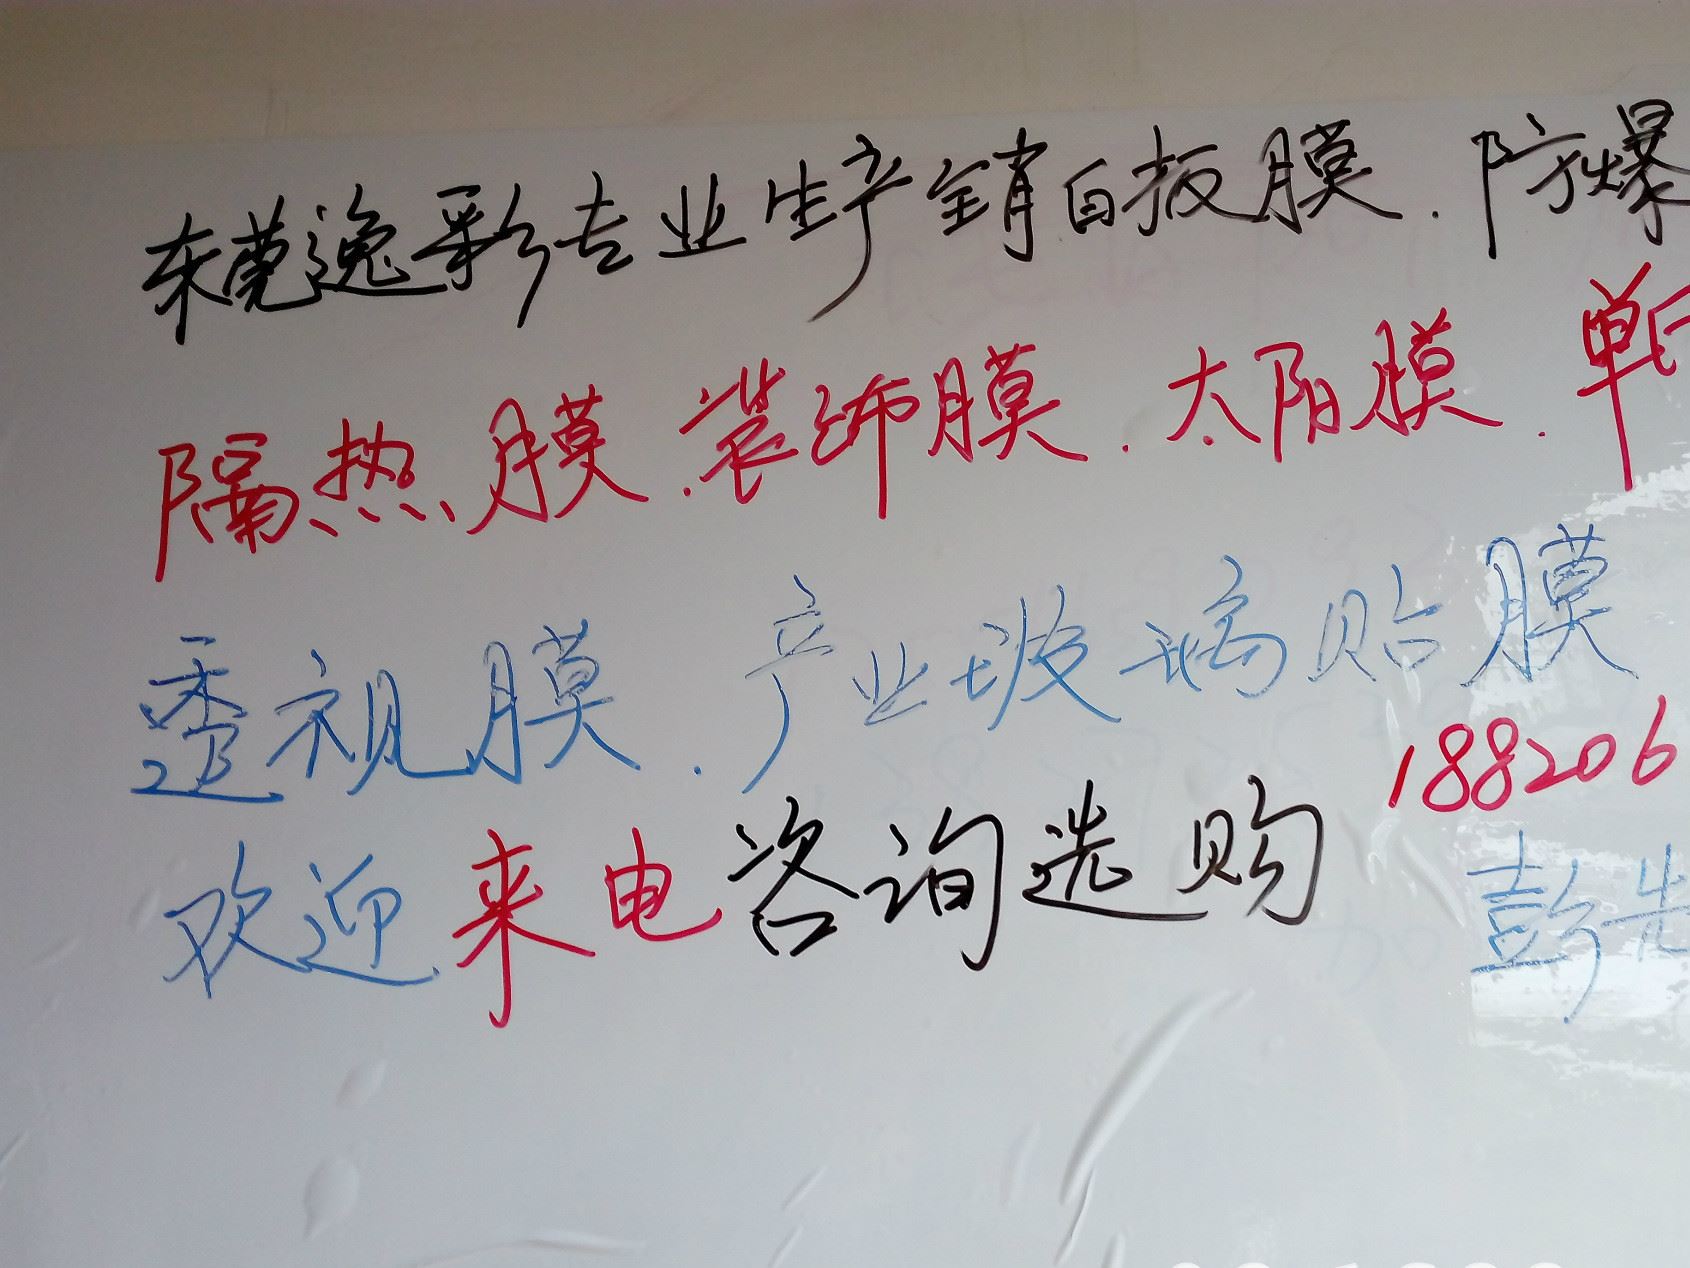 东莞逸彩专业生产销白板膜.防爆
隔热膜.装饰膜.太阳膜.单
透视膜.产业玻璃贴膜
188206
欢迎来电咨询选购
彭先